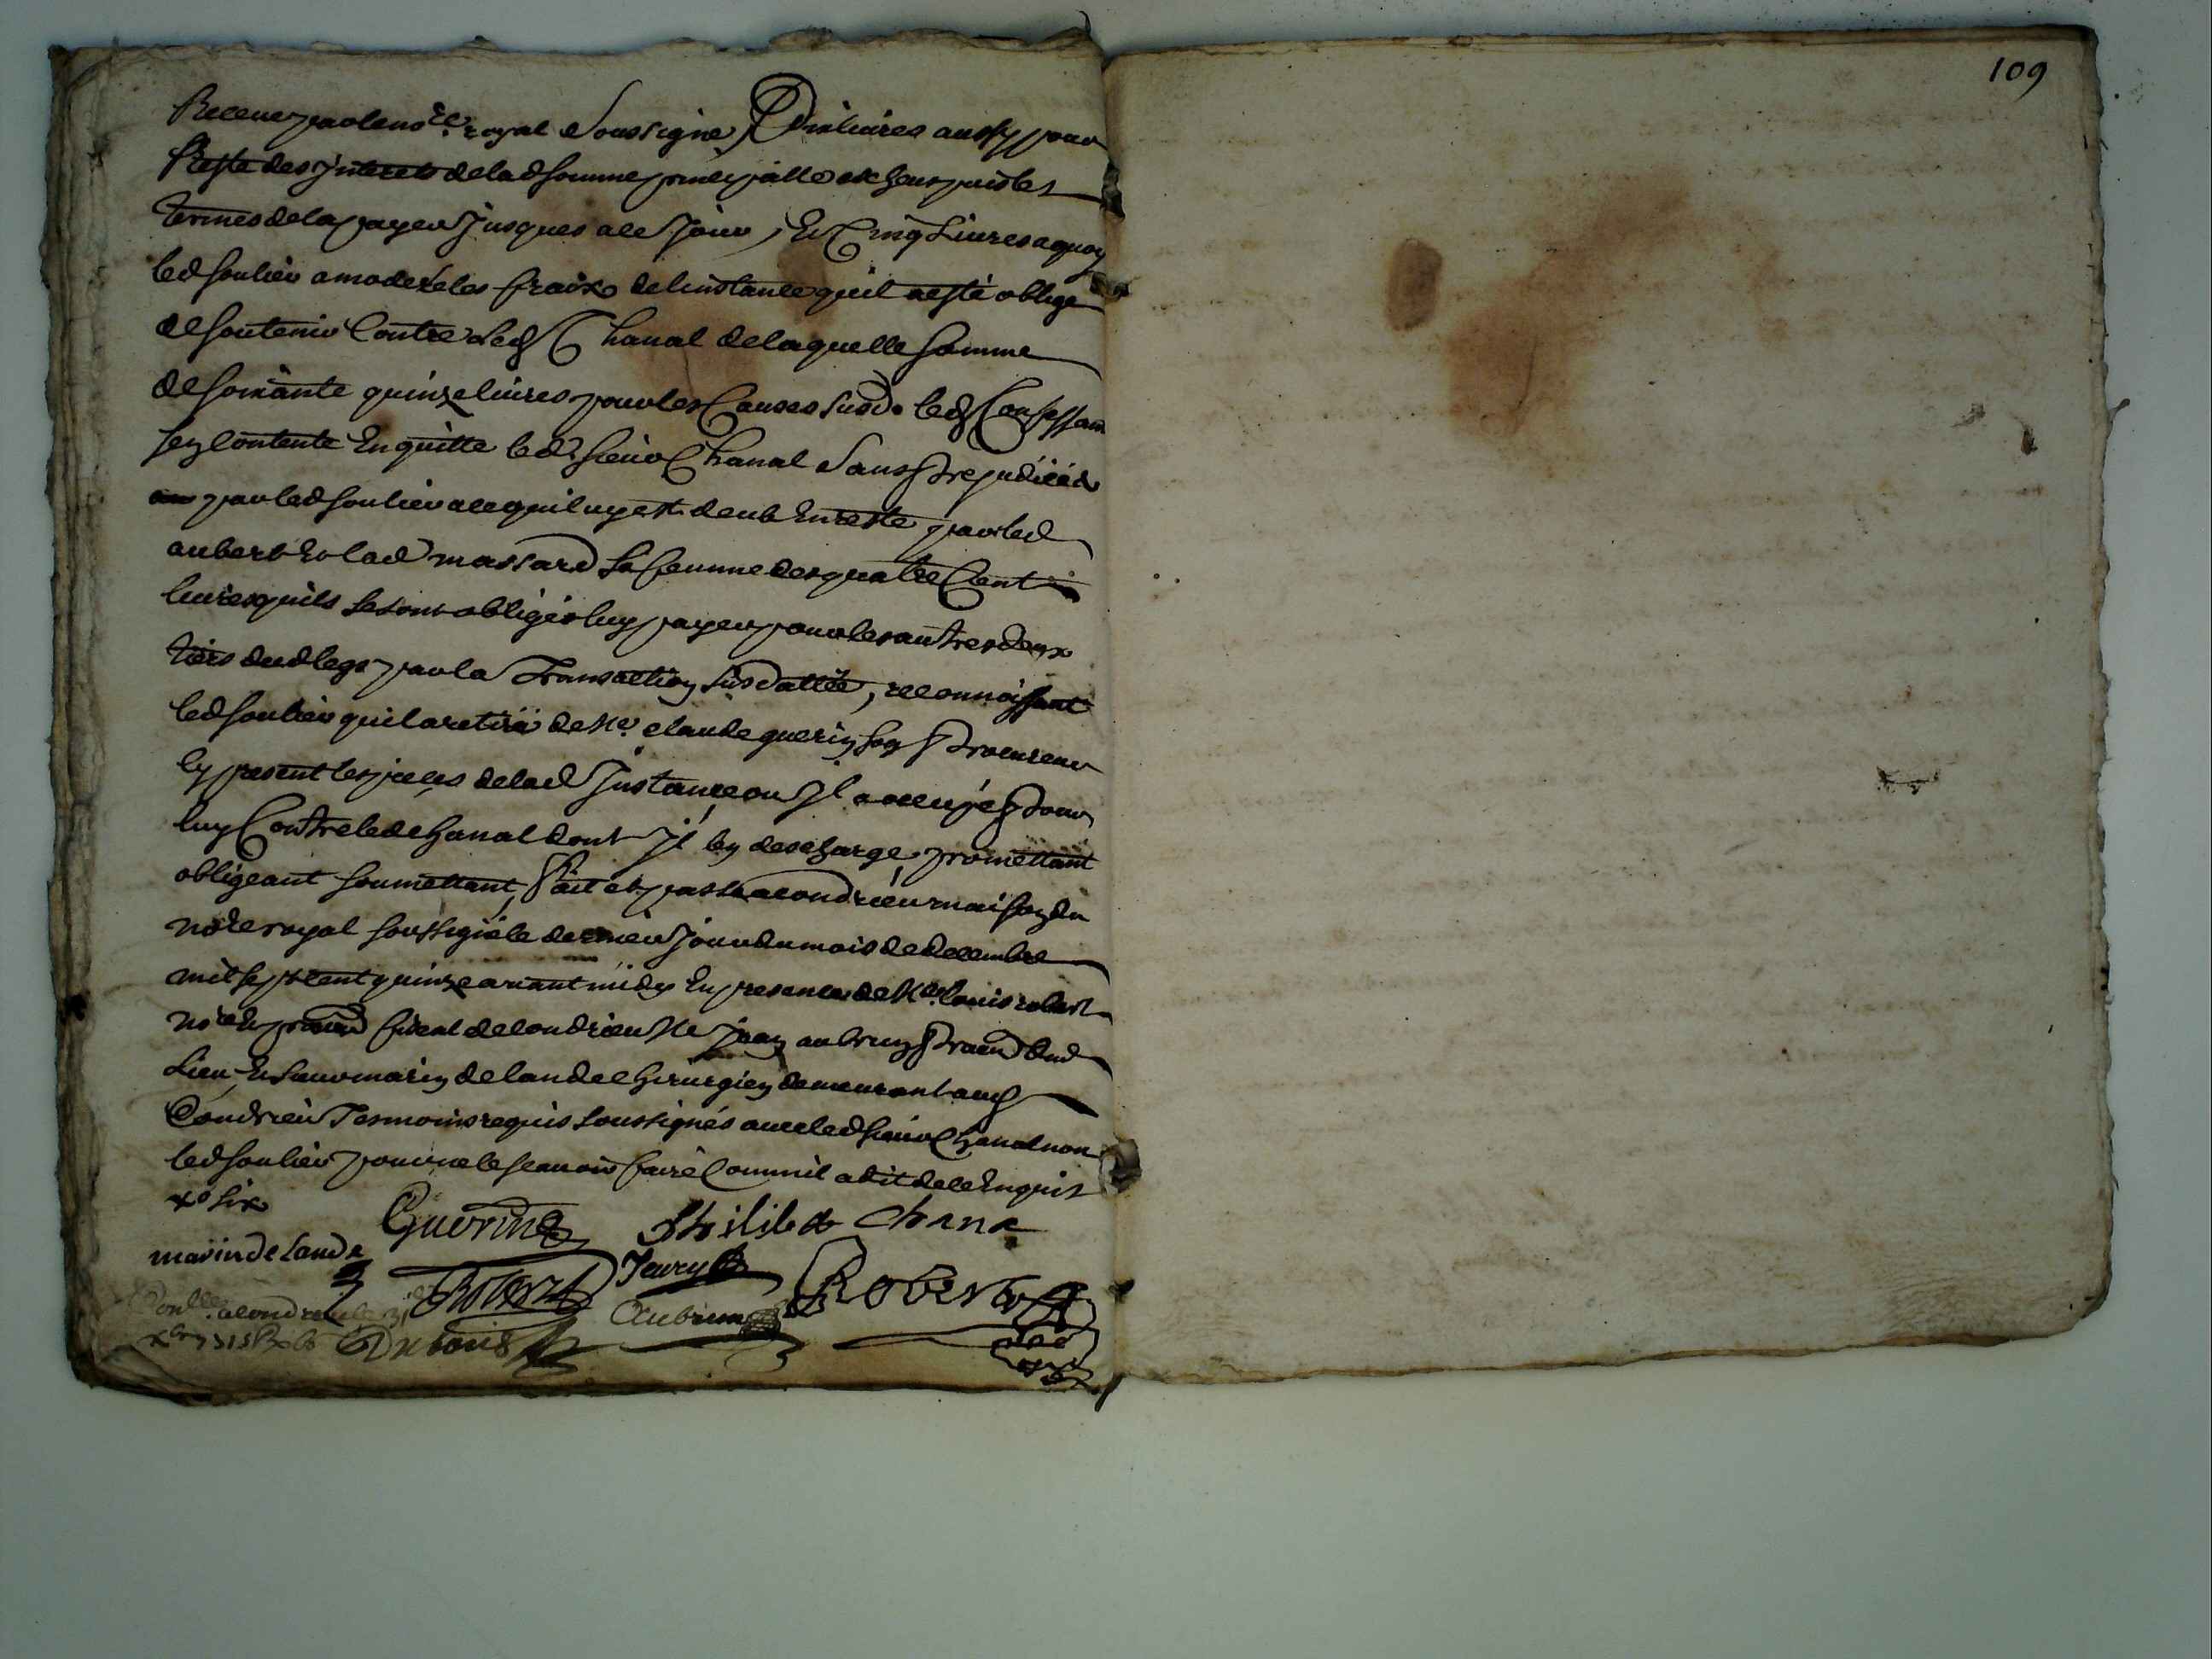 109
Receue par le no.re royal soussigné, Dix livres aussy pour
Reste des Interets de lad somme principalle escheus puis les
termes de la payer Jusques a ce Jour, Et Cinq Livres a quoy
led soulier a moderé les fraix de linstance quil a esté obligé
de soutenir Contre led Chanal de laquelle somme
de soixante quinze livres pour les Causes susd. led Confessant
sen contente En quitte led. sieur Chanal Sans prejudice
par led soulier a ce quil luy est deub En reste par led
aubert Et lad massard sa femme des quatre Cent
livres quils se sont obligés luy payer pour les autres deux
tiers dud legs par la Transaction susdattée, reconnoissant
led soulier quil a retiré de Me. claude guerin son Procureur
cy present les pieces de lad Instance ou Il a occupé Pour
luy Contre led chanal dont Il len descharge, promettant
obligeant soumettant, Fait et passé a condrieu maison du
no.re royal soussigné le dernier Jour du mois de decembre
mil sept cent quinze avant midy En presence de Me. louis robert
no.re et procur fiscal de condrieu Me Jean aubrun Procur dud
Lieu Et sieur marin delande chirurgien demeurant aud
Condrieu Tesmoins requis soussignés avec led sieur Chanal non
led soulier pour ne le scavoir faire Comm il a dit de ce Enquis
xo six
Guerin Philibe Chana
marin de Lande
Robert Favry Robert
Conlle a condrieu le 31
xbre 1715 Aubrun
Dubouis